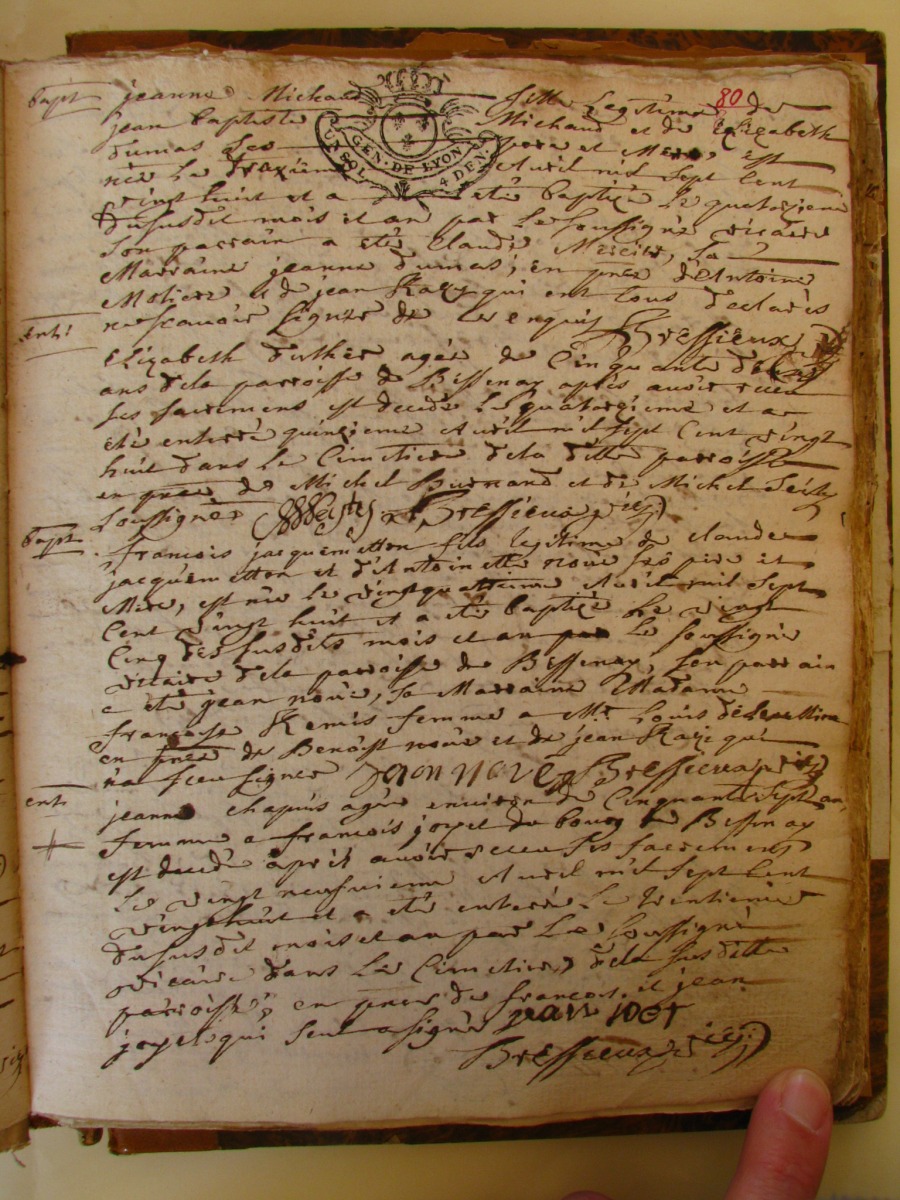 80
bapt jeanne Michaud fille Legitime de
jean baptiste Michaud et de Elizabeth
dumas Ses pere et Mere, est
UN SOL GEN. DE LYON 4 DEN.
née Le treizieme Avril mil Sept Cent
vingt huit et a été baptizée Le quatorzieme
du susdit mois et an par Le Soussigné vicaire
Son parrain a eté Claude Mercier, Sa
Marraine jeanne dumas, en pnce d'Antoine
Moliere et de jean qui ont tous declarés
ne scavoir signer de ce enquis Bressieux
ent:
Elizabeth agée de Cinquante
ans de la parroisse de Bessenay apres avoir receu
ses sacremens est decedée Le quatorzieme et a
eté enterrée quinzieme Avril mil Sept Cent vingt
huit dans Le Cimetiere de la ditte parroisse
en pnce de Michel et de Michel
soussignés Bressieux vic
bapt
francois jacquemetton fils legitime de claude
jacquemetton et d'Antoinette noüe ses pere et
Mere, est née le vingtquatrieme Avril mil Sept
Cent vingt huit et a eté baptizé Le vingt
Cinq des susdits mois et an par Le soussigné
vicaire de la parroisse de Bessenay, son parrain
a eté jean noüe, sa Marraine Madame
francoise femme a Mr Louis
en pnce de Benoist noüe et de jean qui
n'a sceu signer Bressieux vic
ent
jeanne chapuis agée environ de Cinquante Sept ans,
femme a francois joyet du bourg de Bessenay
est decedée aprés avoir receu ses sacremens
Le vingt neufvieme Avril mil Sept Cent
vingthuit et a eté enterrée Le trentieme
du susdit mois et an par Le Soussigné
vicaire dans Le Cimetiere de la susditte
parroisse, en pnce de francois et jean
joyet qui seul a signé jean
Bressieux vic